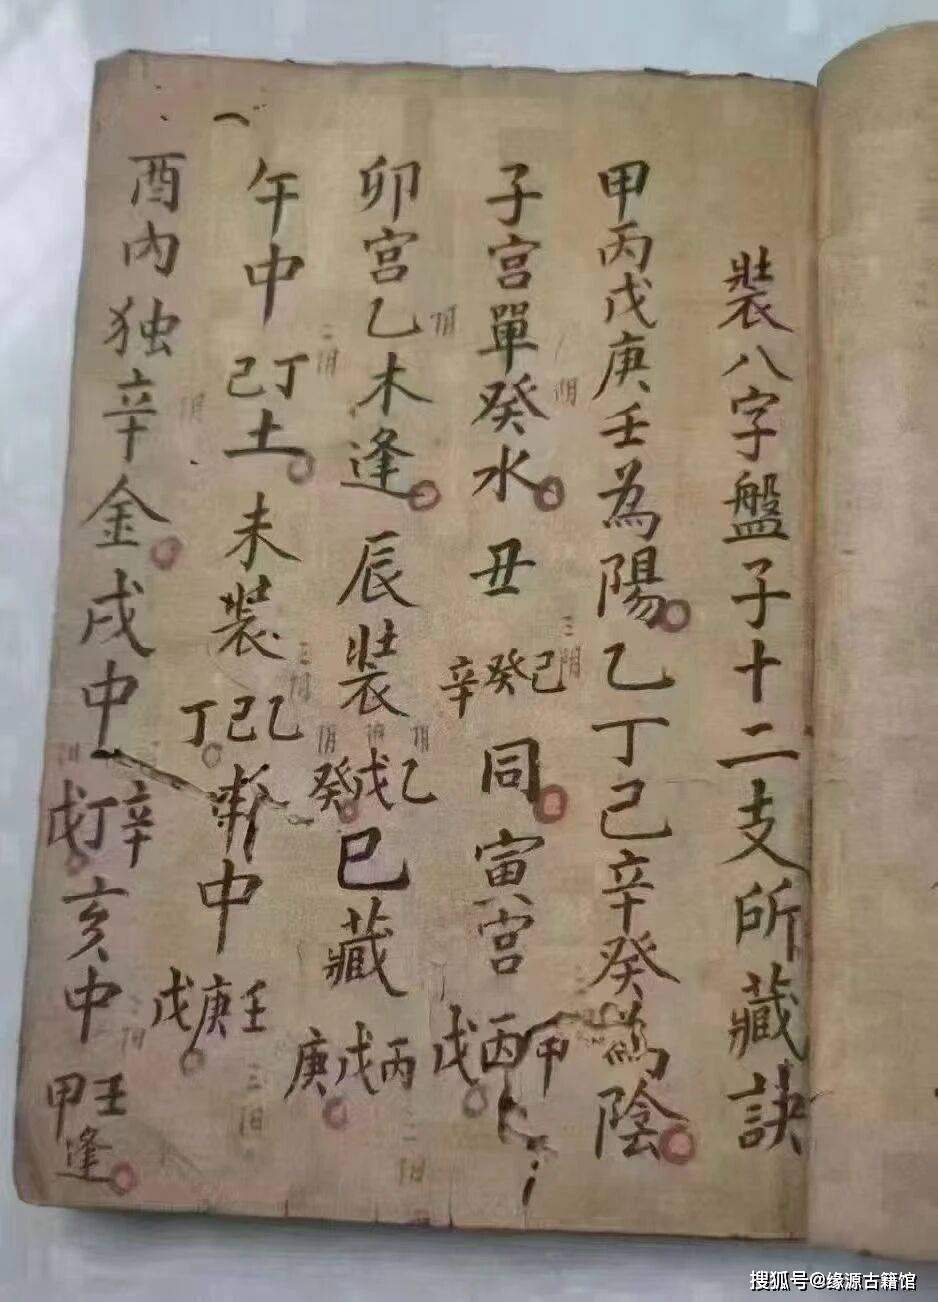 裝八字盤子十二支所藏訣
甲丙戊庚壬為陽乙丁己辛癸為陰
子宮單癸水丑己癸辛同寅宮甲丙戊
卯宮乙木逢辰裝乙戊癸巳藏丙戊庚
午中丁己土未裝乙己丁中壬庚戊
酉內独辛金戌中辛丁戊亥中壬甲逢
搜狐号@缘源古籍馆